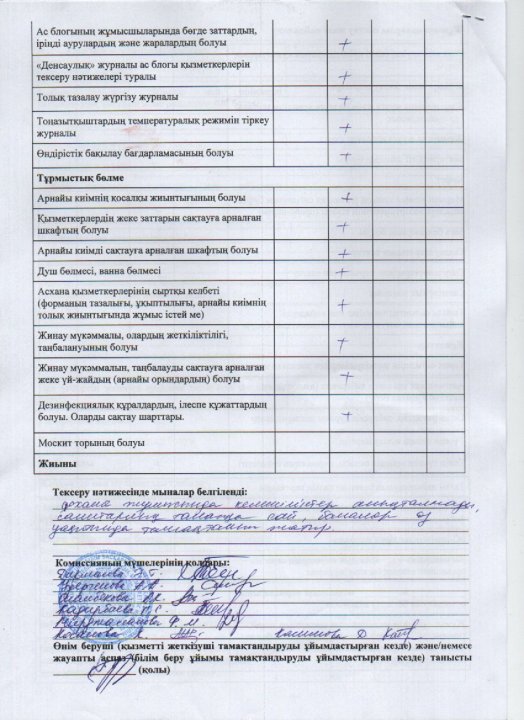 Ас блогының жұмысшыларында бөгде заттардың,
іріңді аурулардың және жаралардың болуы +
«Денсаулық» журналы ас блогы қызметкерлерін
тексеру нәтижелері туралы +
Толық тазалау жүргізу журналы +
Тоңазытқыштардың температуралық режимін тіркеу
журналы +
Өндірістік бақылау бағдарламасының болуы +
Тұрмыстық бөлме
Арнайы киімнің қосалқы жиынтығының болуы +
Қызметкерлердің жеке заттарын сақтауға арналған
шкафтың болуы +
Арнайы киімді сақтауға арналған шкафтың болуы +
Душ бөлмесі, ванна бөлмесі +
Асхана қызметкерлерінің сыртқы келбеті
(форманың тазалығы, ұқыптылығы, арнайы киімнің
толық жиынтығында жұмыс істей ме) +
Жинау мүкәммалы, олардың жеткіліктілігі,
таңбалануының болуы +
Жинау мүкәммалын, таңбалауды сақтауға арналған
жеке үй-жайдың (арнайы орындардың) болуы +
Дезинфекциялық құралдардың, ілеспе құжаттардың
болуы. Оларды сақтау шарттары. +
Москит торының болуы
Жиыны
Тексеру нәтижесінде мыналар белгіленді:
асхана жұмысында кемшіліктер анықталмады,
санитарлық талапқа сай, балалар өз
уақытында тамақтанып жатыр.
Комиссияның мүшелерінің қолдары:
Кадирбаева
Касымова
Өнім беруші (қызметті жеткізуші тамақтандыруды ұйымдастырған кезде) және/немесе
жауапты аспаз (білім беру ұйымы тамақтандыруды ұйымдастырған кезде) танысты
(қолы)